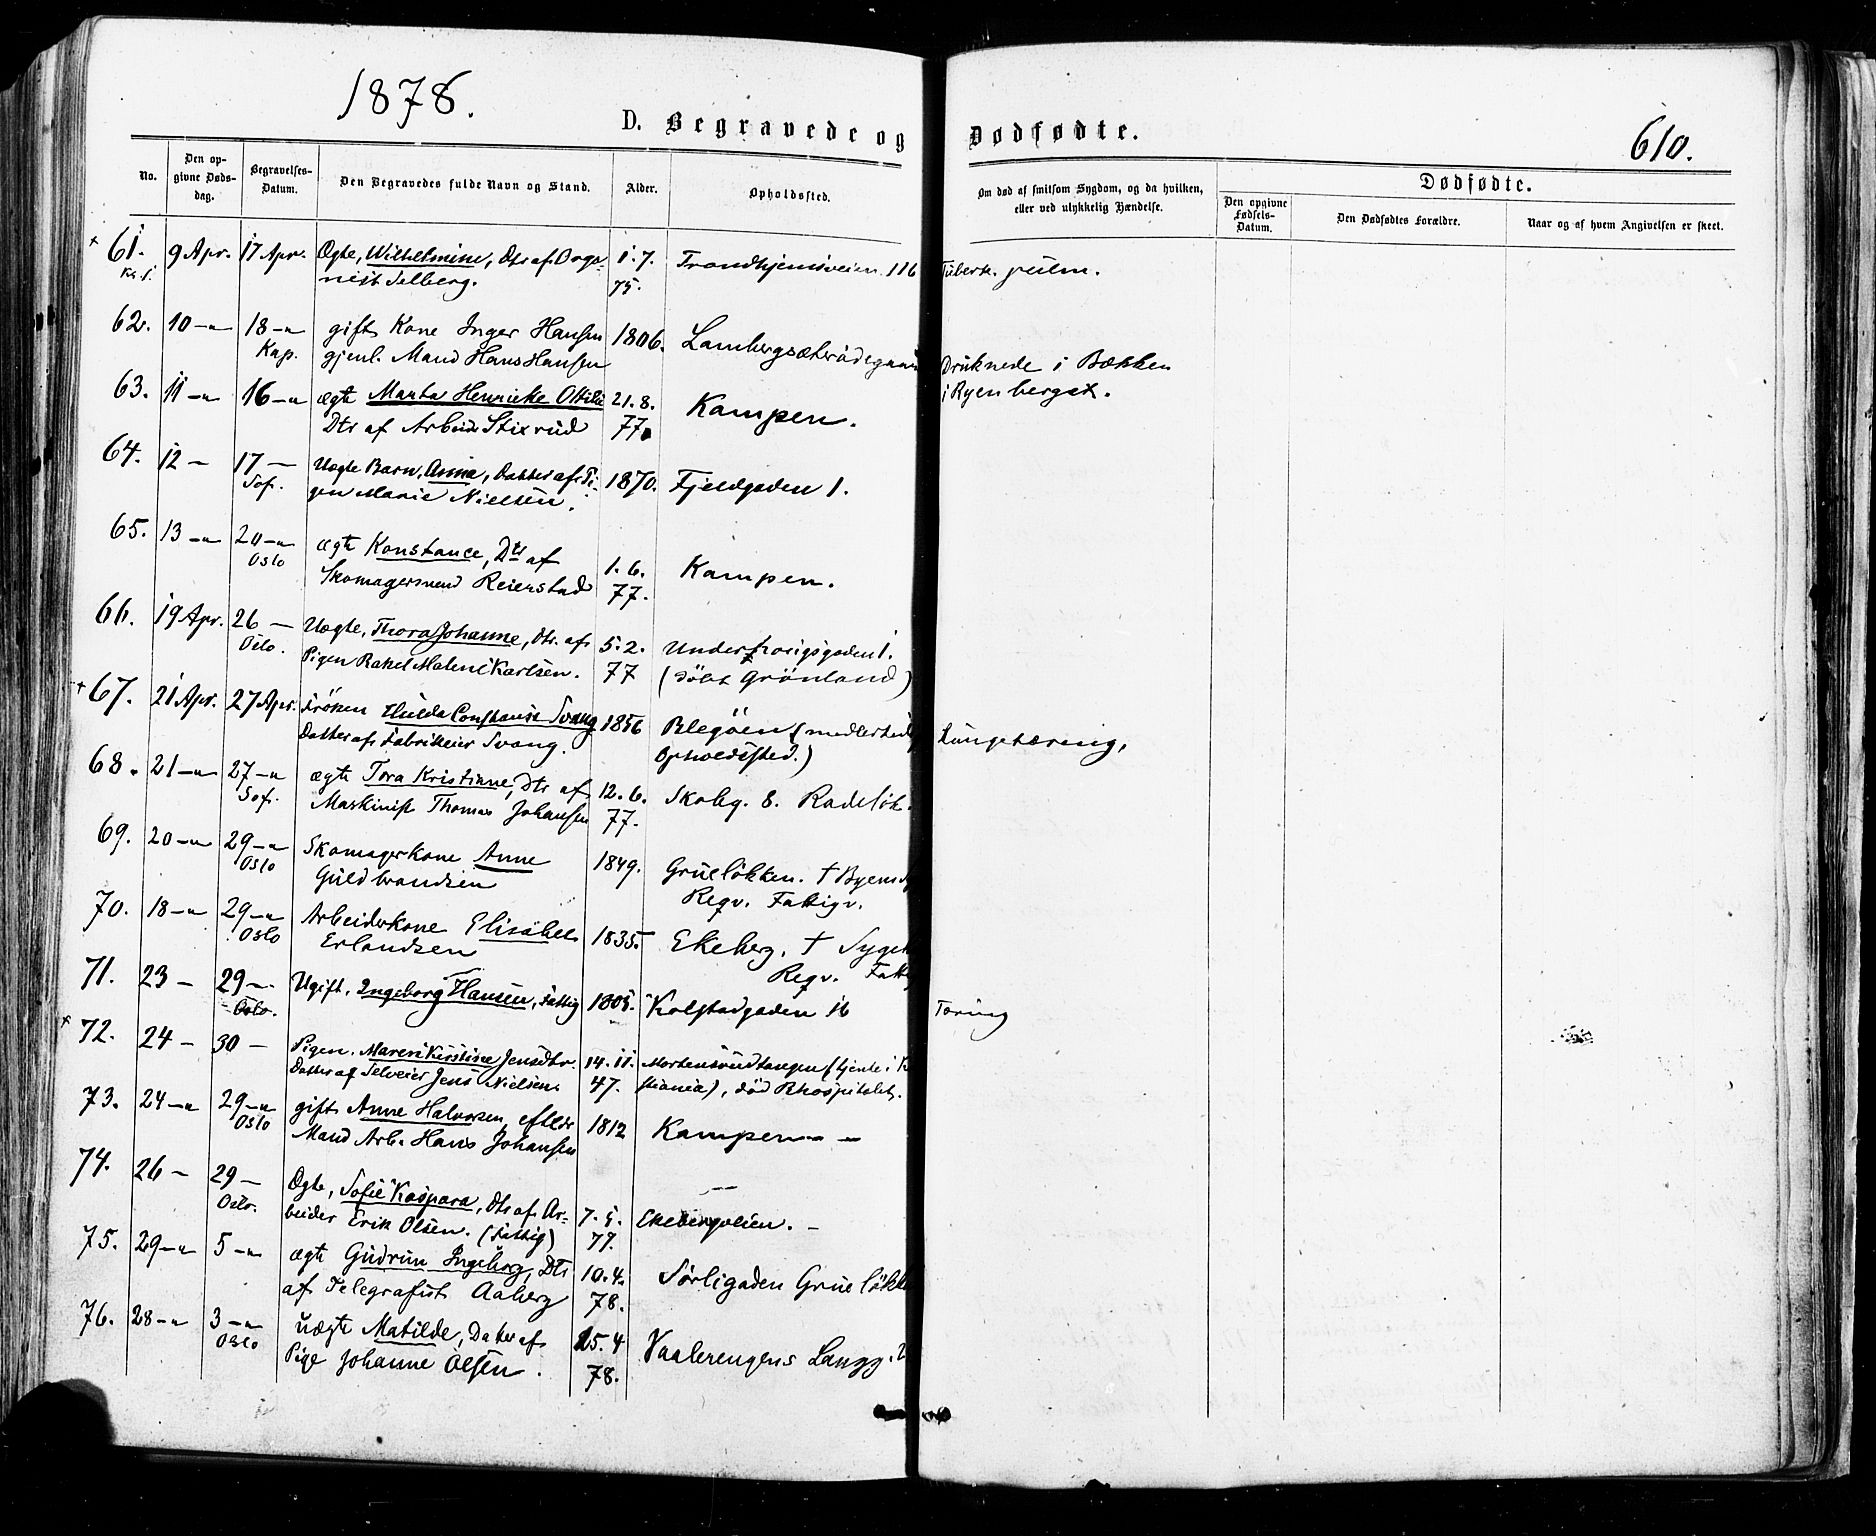 1878.
D. Begravede og Dødfødte.
610.
No.
Den opgivne Dødsdag.
Begravelses-Datum.
Den Begravedes fulde Navn og Stand.
Alder.
Opholdssted.
Om død af smitsom Sygdom, og da hvilken, eller ved ulykkelig Hændelse.
Dødfødte.
Den opgivne Fødsels-Datum.
Den Dødfødtes Forældre.
Naar og af hvem Angivelsen er skeet.
61. 9 Apr. 17 Apr. Ægte, Wilhelmine, Dtr af Orga- 1.7. Trondhjemsveien 116 Tuberk. pulm.
nist Selberg. 75.
62. 10 - 18 - gift Kone Inger Hansen 1806. Lambergsæter
Kap. gjenl. Mand Hans Hansen Druknede i Bækken
63. 11 - 16 - ægte Marta Henrikke Ottilie 21.8. Kampen. i Ryenberget.
Dtr af Arbeid Stixrud 77
64. 12 - 17 - Uægte Barn, Anna, Datter af Pi- 1870. Fjeldgaden 1.
Sof. gen Marie Nielsen.
65. 13 - 20 - ægte Konstance, Dtr af 1.6. Kampen.
Oslo Skomagersvend Reierstad 77.
66. 19 Apr. 26 - Uægte, Thora Johanne, Dtr. af 5.2.
Oslo. Pigen Rakel Malene Karlsen. 77 (döbt Grönland)
+ 67. 21 Apr. 27 Apr. Fröken Hulda Constance Svang 1856 Blegöen (midlertid
Datter af Fabrikeier Svang. Opholdssted.) Lungetæring,
68. 21 - 27 - ægte Tora Kristiane, Dtr af 12.6. Skolig. 8. Rodeløk.
Sof. Maskinist Thomas Johansen 77.
69. 20 - 29 - Skomagerkone Anne 1849. Grueløkken. †
Oslo Guldbrandsen Reqv. Fattigv.
70. 18 - 29 - Arbeiderkone Elisabet 1835. Ekeberg, † Sygeh
Oslo Erlandsen Reqv. Fatt
71. 23 - 29 - Ugift, Ingeborg Hansen, Fattig 1805. Kolstadgaden 16 Tæring
Oslo.
72. 24 - 30 - Pigen, Maren Kirstine Jensdtr. 14.11. Mortensrudtangen (tjente i K
Datter af Selveier Jens Nielsen. 47. stiania), död Rhospitalet.
73. 24 - 29 - gift Anne Halvorsen, efterl. 1812 Kampen -
Oslo Mand Arb. Hans Johansen
74. 26 - 29 - Ægte, Sofie Kaspara, Dtr af Ar- 7.5. Ekeberglien. -
Oslo. beider Erik Olsen. (Fattig) 77.
75. 29 - 5 - ægte Gudrun Ingeborg, Dtr 10.4. Sörligaden Grueløkk
af Telegrafist Aaberg 78.
76. 28 - 3 - uægte Matilde, Datter af 25.4 Vaalerengens Langg.
Oslo Pige Johanne Olsen. 78.